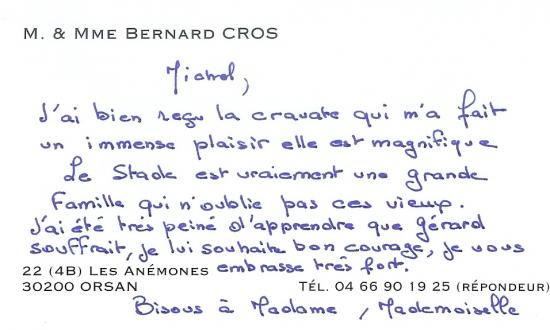 M. & MME BERNARD CROS
Michel,
J'ai bien reçu la cravate qui m'a fait
un immense plaisir elle est magnifique
Le Stade est vraiement une grande
Famille qui n'oublie pas ces vieux.
J'ai été très peiné d'apprendre que Gérard
souffrait, je lui souhaite bon courage, je vous
22 (4B) LES ANÉMONES embrasse très fort.
30200 ORSAN TÉL. 04 66 90 19 25 (RÉPONDEUR)
Bisous à Madame, Mademoiselle